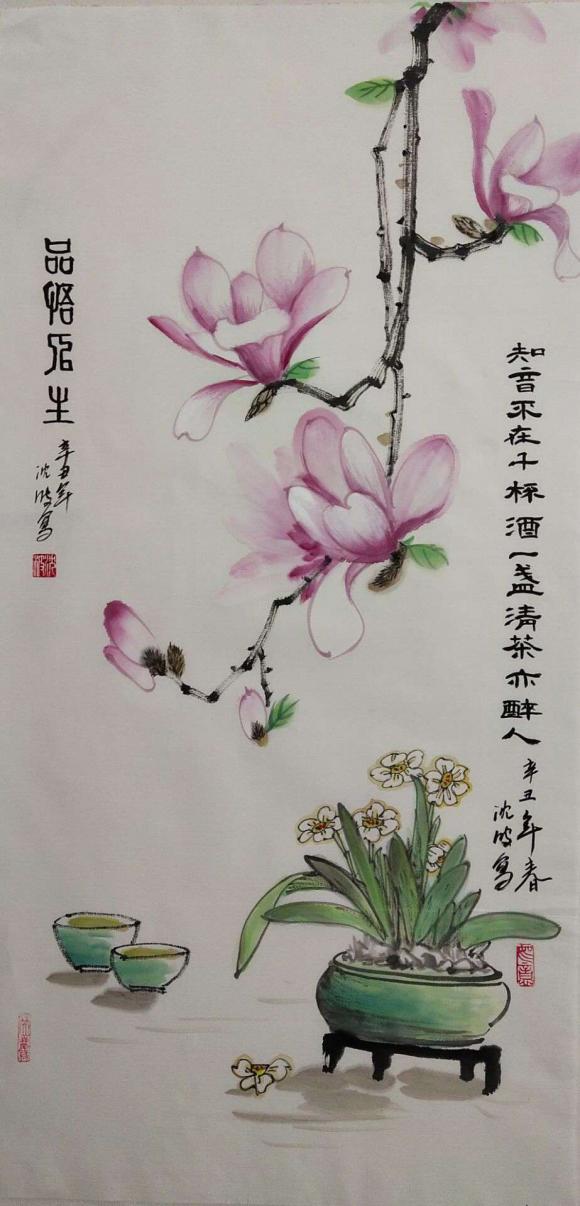 知音不在千杯酒一盏清茶亦醉人
辛丑年春
沈波写
如意
品悟人生
辛丑年
沈波写